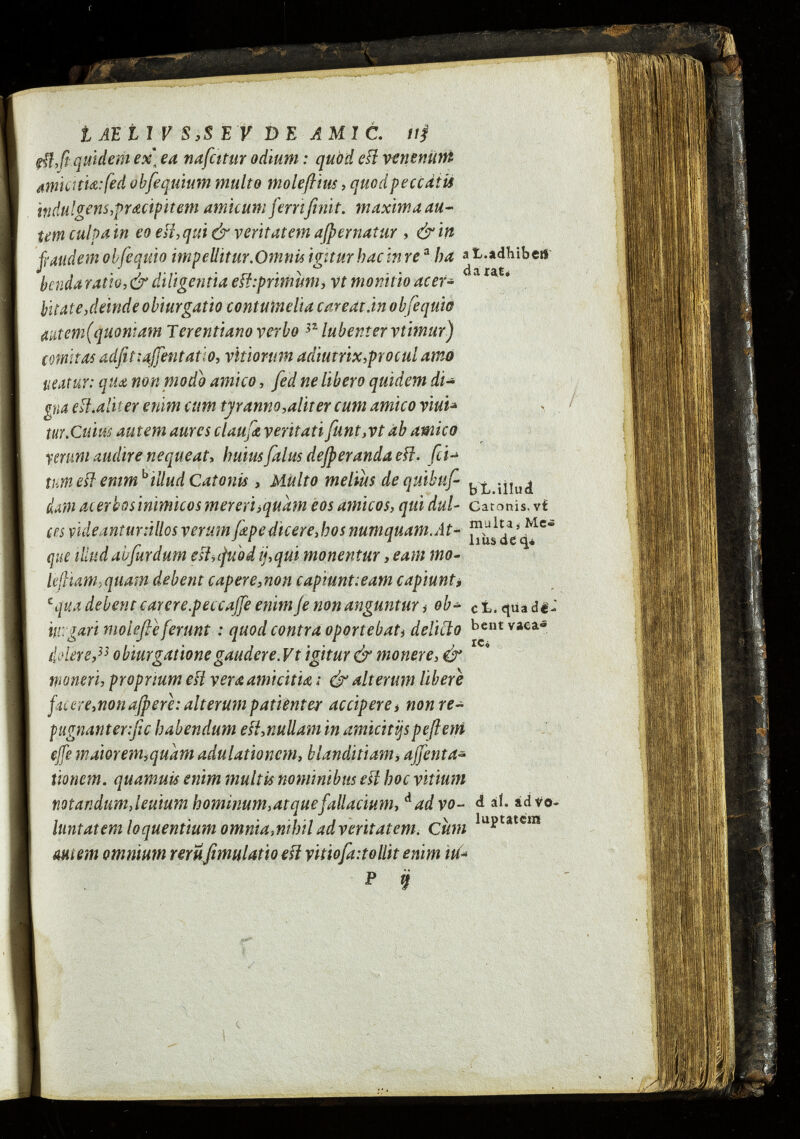 LAELIVS, SEV DE AMIC. 115
est, si quidem ex ea nascitur odium: quòd est venenum
amicitiæ: sed obsequium multo molestius, quod peccatis
indulgens, præcipitem amicum ferri sinit. maxima au-
tem culpa in eo est, qui & veritatem aspernatur, & in
fraudem obsequio impellitur. Omnis igitur hac in re ᵃ ha
benda ratio, & diligentia est: primùm, vt monitio acer-
bitate, deinde obiurgatio contumelia careat. in obsequio
autem (quoniam Terentiano verbo ³² lubenter vtimur)
comitas adsit: assentatio, vitiorum adiutrix, procul amo
ueatur: quæ non modo amico, sed ne libero quidem di-
gna est. aliter enim cum tyranno, aliter cum amico viui-
tur. Cuius autem aures clausæ veritati sunt, vt ab amico
verum audire nequeat, huius salus desperanda est. sci-
tum est enim ᵇ illud Catonis, Multo melius de quibus-
dam acerbos inimicos mereri, quàm eos amicos, qui dul-
ces videantur: illos verum sæpe dicere, hos numquam. At-
que illud absurdum est, quòd ij, qui monentur, eam mo-
lestiam, quam debent capere, non capiunt: eam capiunt,
ᶜ qua debent carere. peccasse enim se non anguntur, ob-
iurgari molestè ferunt: quod contra oportebat, delicto
dolere, ³³ obiurgatione gaudere. Vt igitur & monere, &
moneri, proprium est veræ amicitiæ: & alterum liberè
facere, non asperè: alterum patienter accipere, non re-
pugnanter: sic habendum est, nullam in amicitijs pestem
esse maiorem, quàm adulationem, blanditiam, assenta-
tionem. quamuis enim multis nominibus est hoc vitium
notandum, leuium hominum, atque fallacium, ᵈ ad vo-
luntatem loquentium omnia, nihil ad veritatem. Cùm
autem omnium rerū simulatio est vitiosa: tollit enim iu-
P ij
a L. adhiben
da rat.
b L. illud
Catonis, vt
multa, Me-
lius de q.
c L. qua de-
bent vaca-
re.
d al. ad vo-
luptatem